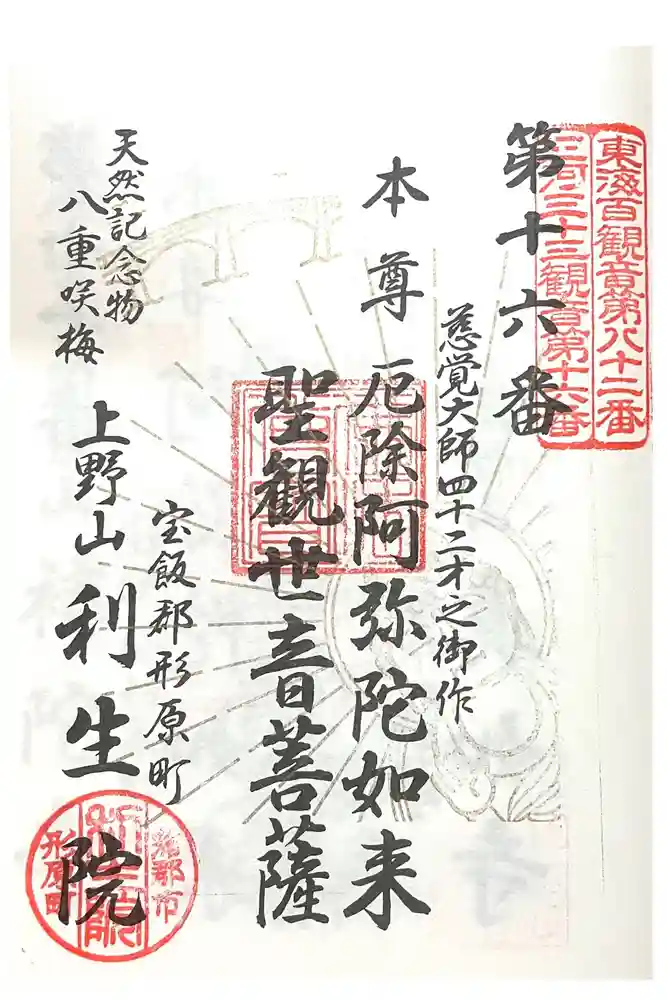 東海百観音第八十二番
三河三十三観音第十六番
第十六番
慈覚大師四十二才之御作
本尊 厄除阿弥陀如来
聖観世音菩薩
宝飯郡形原町
上野山利生院
天然記念物
八重咲梅
蒲郡市
形原町